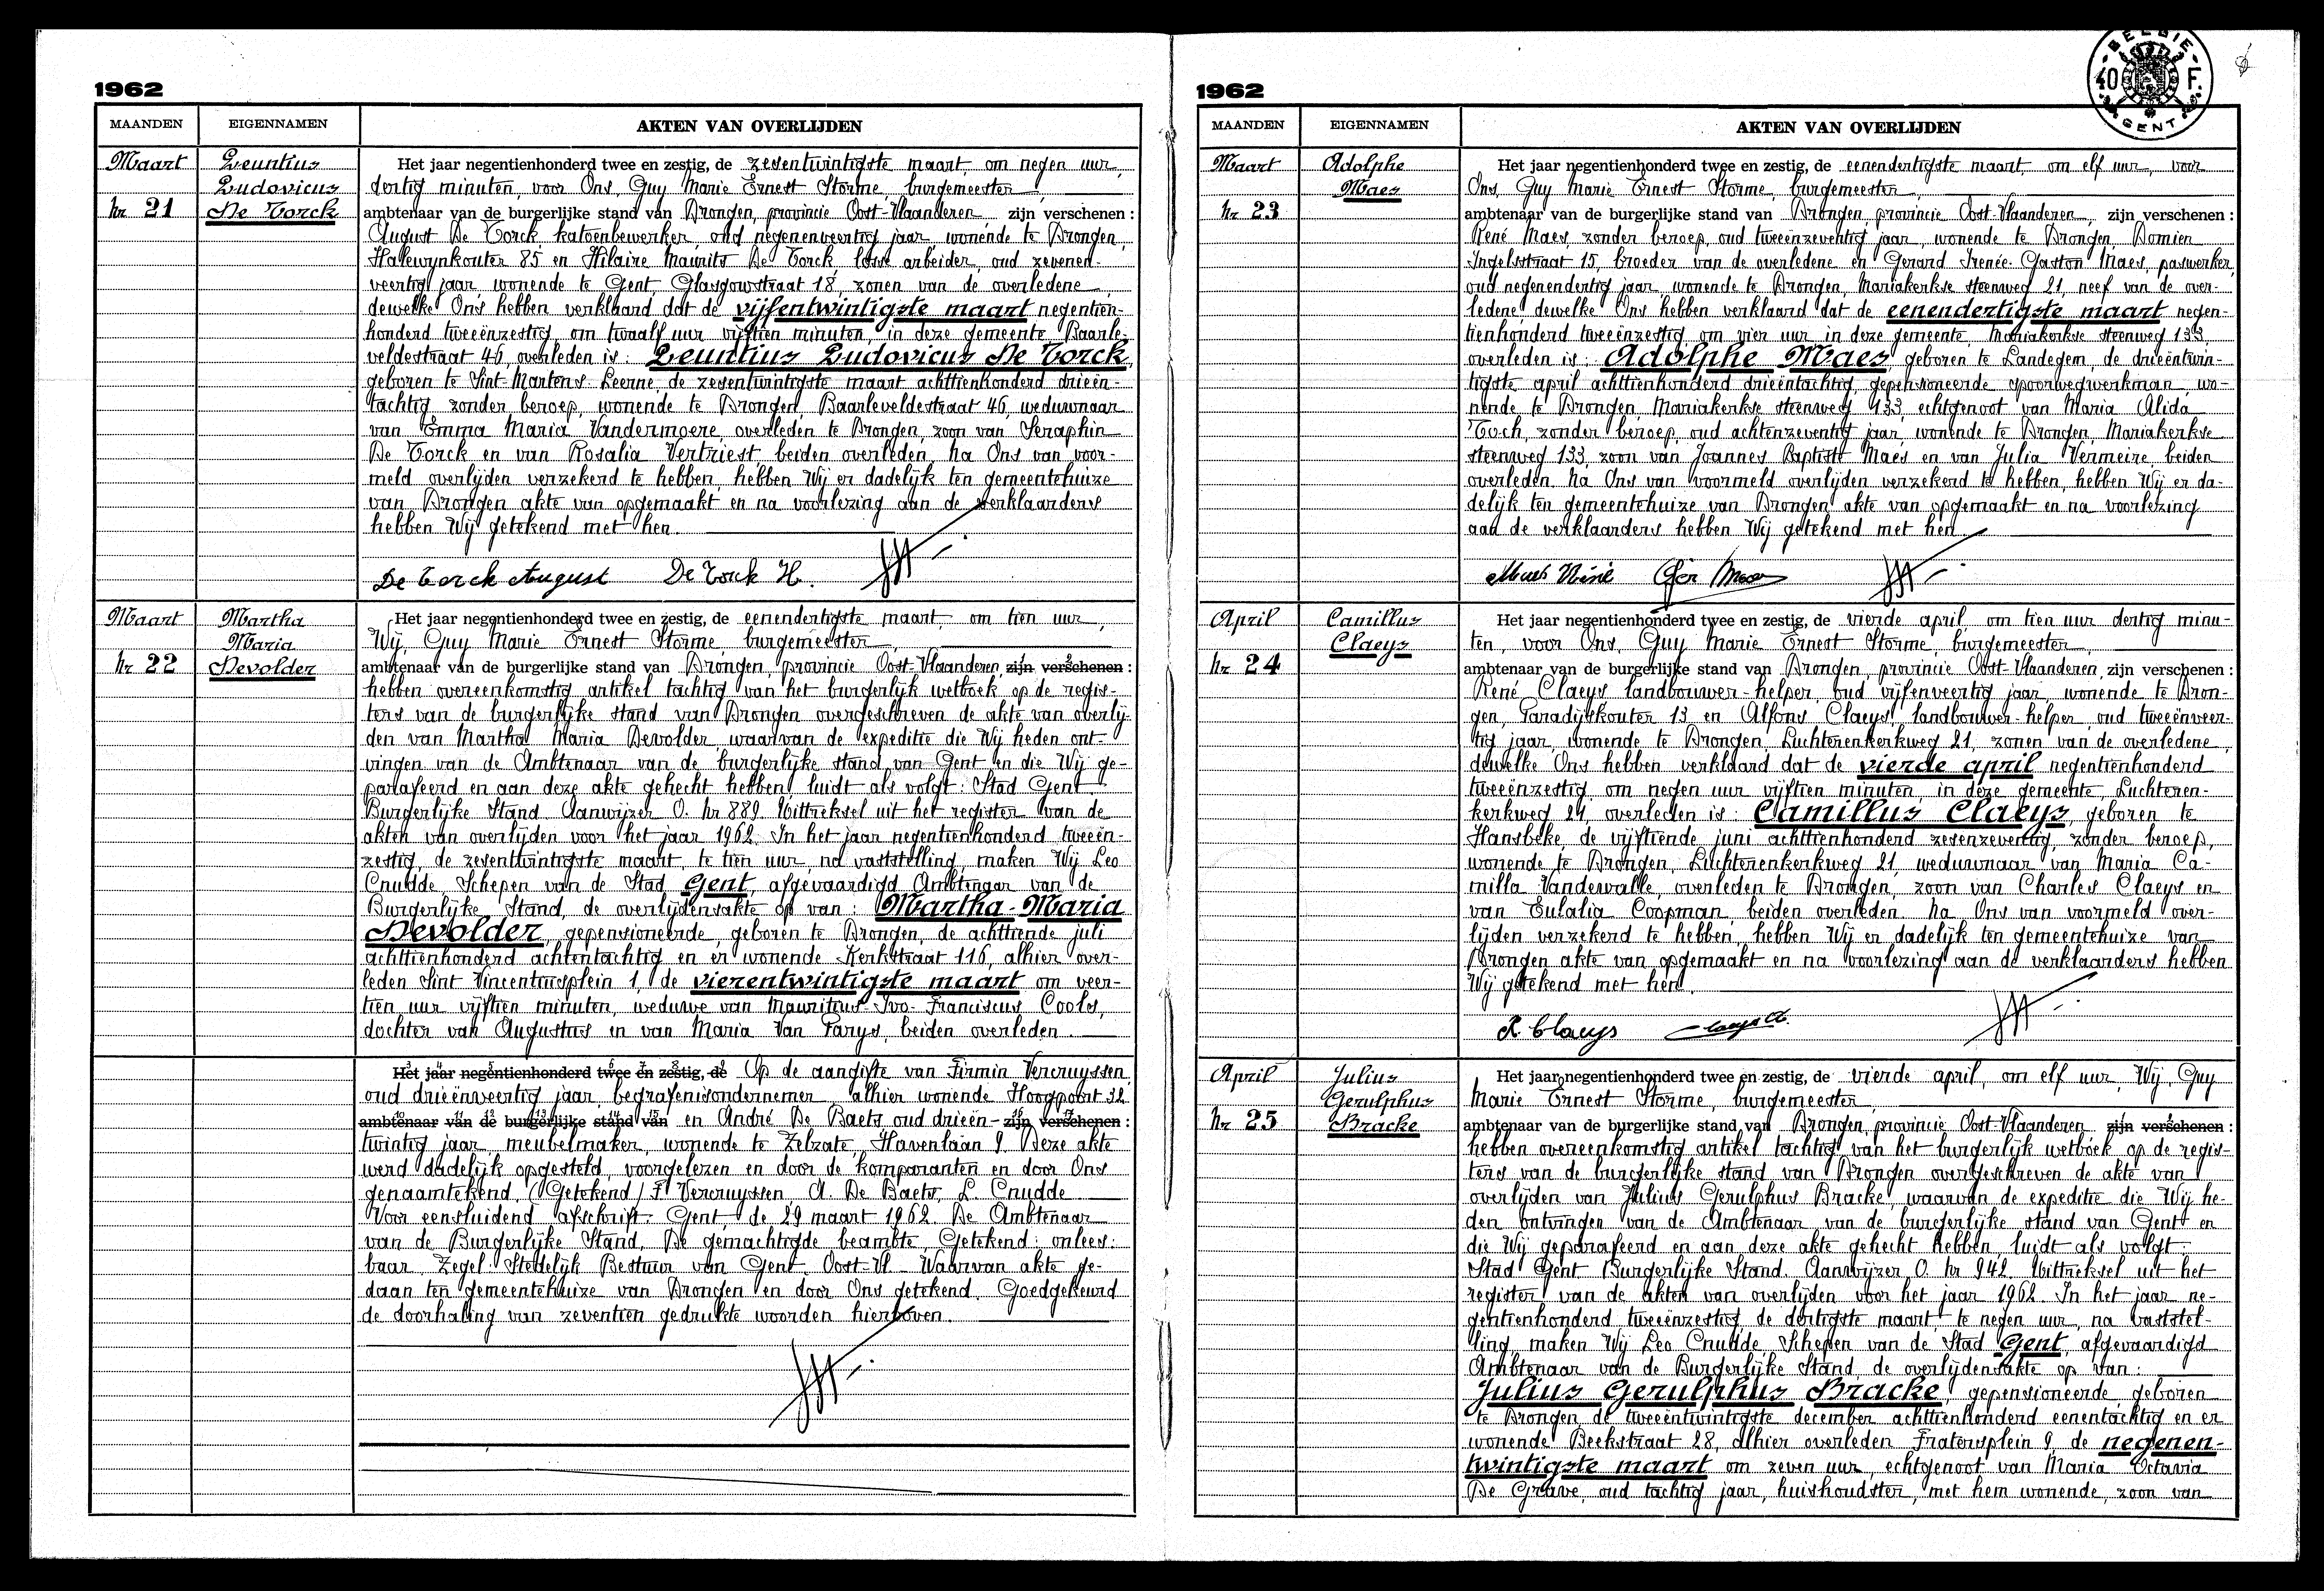 1962
MAANDEN EIGENNAMEN AKTEN VAN OVERLIJDEN
Maart
Nr 21
Leuntius
Ludovicus
De Torck
Het jaar negentienhonderd twee en zestig, de zesentwintigste maart, om negen uur,
dertig minuten, voor Ons, Guy Marie Ernest Storme, burgemeester,
ambtenaar van de burgerlijke stand van Drongen, provincie Oost-Vlaanderen zijn verschenen :
August De Torck, katoenbewerker, oud negenenveertig jaar, wonende te Drongen,
Halewynkouter 85 en Hilaire Maurits De Torck, losse arbeider, oud zevenen-
veertig jaar, wonende te Gent, Glasgowstraat 18, zonen van de overledene
dewelke Ons hebben verklaard dat de vijfentwintigste maart negentien-
honderd tweeënzestig, om twaalf uur vijftien minuten, in deze gemeente, Baarle-
veldestraat 46, overleden is : Leuntius Ludovicus De Torck,
geboren te Sint-Martens-Leerne, de zesentwintigste maart achttienhonderd drieën-
tachtig, zonder beroep, wonende te Drongen, Baarleveldestraat 46, weduwnaar
van Emma Maria Vandermoere, overleden te Drongen, zoon van Seraphin
De Torck en van Rosalia Vertriest, beiden overleden. Na Ons van voor-
meld overlijden verzekerd te hebben, hebben Wij er dadelijk ten gemeentehuize
van Drongen akte van opgemaakt en na voorlezing aan de verklaarders
hebben Wij getekend met hen.
De Torck August De Torck H.
Maart
Nr 22
Martha
Maria
Devolder
Het jaar negentienhonderd twee en zestig, de eenendertigste maart, om tien uur,
Wij, Guy Marie Ernest Storme, burgemeester,
ambtenaar van de burgerlijke stand van Drongen, provincie Oost-Vlaanderen, zijn verschenen :
hebben overeenkomstig artikel tachtig van het burgerlijk wetboek op de regis-
ters van de burgerlijke stand van Drongen overgeschreven de akte van overlij-
den van Martha Maria Devolder, waarvan de expeditie die Wij heden ont-
vingen van de Ambtenaar van de burgerlijke stand van Gent en die Wij ge-
parafeerd en aan deze akte gehecht hebben, luidt als volgt : Stad Gent.
Burgerlijke Stand. Aanwijzer O. Nr 889. Uittreksel uit het register van de
akten van overlijden voor het jaar 1962. In het jaar negentienhonderd tweeën-
zestig, de zesentwintigste maart, te tien uur, na vaststelling, maken Wij Leo
Cnudde, Schepen van de Stad Gent, afgevaardigd Ambtenaar van de
Burgerlijke Stand, de overlijdensakte op van : Martha-Maria
Devolder, gepensioneerde, geboren te Drongen, de achttiende juli
achttienhonderd achtentachtig en er wonende Kerkstraat 116, alhier over-
leden Sint Vincentiusplein 1, de vierentwintigste maart om veer-
tien uur vijftien minuten, weduwe van Mauritius-Ivo-Franciscus Cools,
dochter van Augustus en van Maria Van Parys, beiden overleden.
Het jaar negentienhonderd twee en zestig, de Op de aangifte van Firmin Vercruyssen,
oud drieënveertig jaar, begrafenisondernemer, alhier wonende Hoogpoort 32
ambtenaar van de burgerlijke stand van en André De Baets, oud drieën- zijn verschenen :
twintig jaar, meubelmaker, wonende te Zelzate, Havenlaan 9. Deze akte
werd dadelijk opgesteld, voorgelezen en door de komparanten en door Ons
genaamtekend. (Getekend) F. Vercruyssen, A. De Baets, L. Cnudde
Voor eensluidend afschrift. Gent, de 29 maart 1962. De Ambtenaar
van de Burgerlijke Stand, De gemachtigde beambte, Getekend : onlees-
baar. Zegel : Stedelijk Bestuur van Gent Oost-Vl - Waarvan akte ge-
daan ten gemeentehuize van Drongen en door Ons getekend. Goedgekeurd
de doorhaling van zeventien gedrukte woorden hierboven.
1962
BELGIE 40 F. GENT
MAANDEN EIGENNAMEN AKTEN VAN OVERLIJDEN
Maart
Nr 23
Adolphe
Maes
Het jaar negentienhonderd twee en zestig, de eenendertigste maart, om elf uur, voor
Ons, Guy Marie Ernest Storme, burgemeester,
ambtenaar van de burgerlijke stand van Drongen, provincie Oost-Vlaanderen, zijn verschenen :
René Maes, zonder beroep, oud tweeënzeventig jaar, wonende te Drongen, Domien
Ingelsstraat 15, broeder van de overledene en Gerard Irenée Gaston Maes, paswerker,
oud negenendertig jaar, wonende te Drongen, Mariakerkse steenweg 21, neef van de over-
ledene dewelke Ons hebben verklaard dat de eenendertigste maart negen-
tienhonderd tweeënzestig om vier uur in deze gemeente, Mariakerkse steenweg 133,
overleden is : Adolphe Maes, geboren te Landegem, de drieëntwin-
tigste april achttienhonderd drieëntachtig, gepensioneerde spoorwegwerkman, wo-
nende te Drongen, Mariakerkse steenweg 133, echtgenoot van Maria Alida
Toch, zonder beroep, oud achtenzeventig jaar, wonende te Drongen, Mariakerkse
steenweg 133, zoon van Joannes Baptiste Maes en van Julia Vermeire, beiden
overleden. Na Ons van voormeld overlijden verzekerd te hebben, hebben Wij er da-
delijk ten gemeentehuize van Drongen akte van opgemaakt en na voorlezing
aan de verklaarders hebben Wij getekend met hen.
Maes René Ger Maes
April
Nr 24
Camillus
Claeys
Het jaar negentienhonderd twee en zestig, de vierde april, om tien uur dertig minu-
ten, voor Ons, Guy Marie Ernest Storme, burgemeester,
ambtenaar van de burgerlijke stand van Drongen, provincie Oost-Vlaanderen, zijn verschenen :
René Claeys, landbouwer-helper, oud vijfenveertig jaar, wonende te Dron-
gen, Paradijskouter 13 en Alfons Claeys, landbouwer-helper, oud tweeënveer-
tig jaar, wonende te Drongen, Luchterenkerkweg 21, zonen van de overledene,
dewelke Ons hebben verklaard dat de vierde april negentienhonderd
tweeënzestig om negen uur vijftien minuten, in deze gemeente, Luchteren-
kerkweg 21, overleden is : Camillus Claeys, geboren te
Hansbeke, de vijftiende juni achttienhonderd zesenzeventig, zonder beroep,
wonende te Drongen, Luchterenkerkweg 21, weduwnaar van Maria Ca-
milla Vandewalle, overleden te Drongen, zoon van Charles Claeys en
van Eulalia Coopman, beiden overleden. Na Ons van voormeld over-
lijden verzekerd te hebben, hebben Wij er dadelijk ten gemeentehuize van
Drongen akte van opgemaakt en na voorlezing aan de verklaarders hebben
Wij getekend met hen.
R. Claeys Claeys A.
April
Nr 25
Julius
Gerulphus
Bracke
Het jaar negentienhonderd twee en zestig, de vierde april, om elf uur, Wij, Guy
Marie Ernest Storme, burgemeester,
ambtenaar van de burgerlijke stand van Drongen, provincie Oost-Vlaanderen zijn verschenen :
hebben overeenkomstig artikel tachtig van het burgerlijk wetboek op de regis-
ters van de burgerlijke stand van Drongen overgeschreven de akte van
overlijden van Julius Gerulphus Bracke, waarvan de expeditie die Wij he-
den ontvingen van de Ambtenaar van de burgerlijke stand van Gent en
die Wij geparafeerd en aan deze akte gehecht hebben, luidt als volgt :
Stad Gent Burgerlijke Stand. Aanwijzer O. Nr 942. Uittreksel uit het
register van de akten van overlijden voor het jaar 1962. In het jaar ne-
gentienhonderd tweeënzestig, de dertigste maart te negen uur, na vaststel-
ling maken Wij Leo Cnudde, Schepen van de Stad Gent, afgevaardigd
Ambtenaar van de Burgerlijke Stand, de overlijdensakte op van :
Julius Gerulphus Bracke, gepensioneerde, geboren
te Drongen, de tweeëntwintigste december achttienhonderd eenentachtig en er
wonende Beekstraat 28, alhier overleden Fratersplein 9, de negenen-
twintigste maart om zeven uur, echtgenoot van Maria Octavia
De Grave, oud tachtig jaar, huishoudster, met hem wonende, zoon van